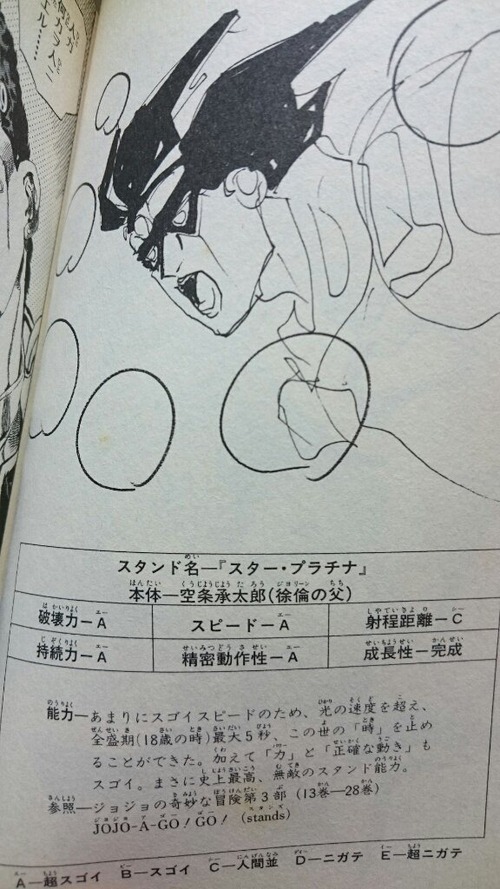 スタンド名―『スター・プラチナ』
本体―空条承太郎(徐倫の父)
破壊力―A
スピード―A
射程距離―C
持続力―A
精密動作性―A
成長性―完成
能力―あまりにスゴイスピードのため、光の速度を超え、
全盛期(18歳の時)最大5秒、この世の「時」を止め
ることができた。加えて「力」と「正確な動き」も
スゴイ。まさに史上最高、無敵のスタンド能力。
参照―ジョジョの奇妙な冒険第3部(13巻―28巻)
JOJO-A-GO!GO!(stands)
A―超スゴイ B―スゴイ C―人間並 D―ニガテ E―超ニガテ